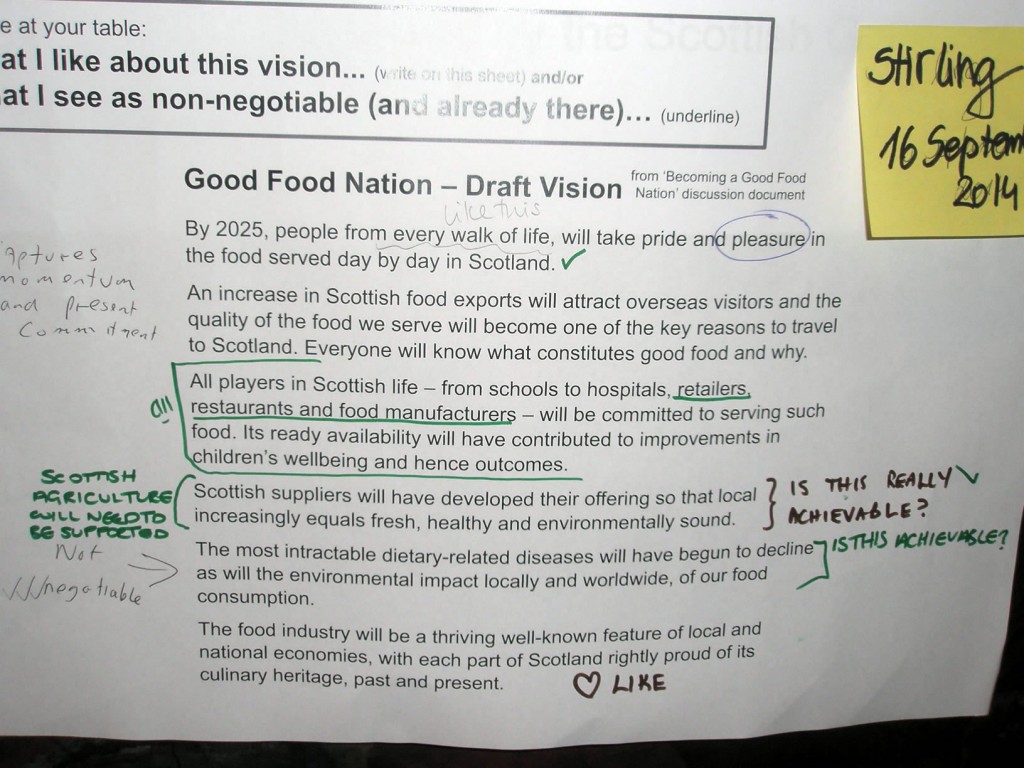 e at your table:
at I like about this vision... (write on this sheet) and/or
at I see as non-negotiable (and already there)... (underline)
Stirling
16 Septem
2014
Good Food Nation – Draft Vision
from 'Becoming a Good Food
Nation' discussion document
like this
By 2025, people from every walk of life, will take pride and pleasure in
the food served day by day in Scotland. ✓
aptures
momentum
and present
commitment
An increase in Scottish food exports will attract overseas visitors and the
quality of the food we serve will become one of the key reasons to travel
to Scotland. Everyone will know what constitutes good food and why.
all
All players in Scottish life – from schools to hospitals, retailers,
restaurants and food manufacturers – will be committed to serving such
food. Its ready availability will have contributed to improvements in
children's wellbeing and hence outcomes.
SCOTTISH
AGRICULTURE
WILL NEED TO
BE SUPPORTED
Scottish suppliers will have developed their offering so that local
increasingly equals fresh, healthy and environmentally sound.
IS THIS REALLY ✓
ACHIEVABLE?
Not
negotiable
The most intractable dietary-related diseases will have begun to decline
as will the environmental impact locally and worldwide, of our food
consumption.
IS THIS ACHIEVABLE?
The food industry will be a thriving well-known feature of local and
national economies, with each part of Scotland rightly proud of its
culinary heritage, past and present.
♡ LIKE